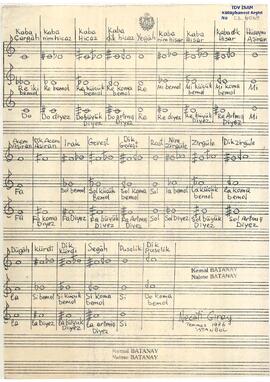 TDV İSAM
Kütüphanesi Arşivi
No
Kaba Çargâh Kaba nim Hicaz Kaba Hicaz Kaba dik hicaz Yegâh Kaba nim hisar Kaba Hisar Kaba dik Hisar Hüseyni Aşiran
Re bemol Re Mi bemol Mi küçük bemol Mi koma bemol Mi
Do Do diyez Do büyük Diyez Re Re Diyez Mi
Acem Aşiran Dik Acem Aşiran Irak Geveşt Dik Geveşt Rast Nim Zirgüle Zirgüle Dik Zirgüle
Sol bemol Sol küçük bemol Sol koma bemol Sol La bemol La küçük bemol La koma bemol
Fa Fa koma Diyez Fa Diyez Fa büyük Diyez Fa Artmış Diyez Sol Sol Diyez Sol büyük Diyez Sol Artmış Diyez
Dügâh Kürdi Dik Kürdi Segâh Puselik Dik Puselik
La Si bemol Si küçük bemol Si koma bemol Si Do koma bemol
La La Diyez La büyük Diyez La artmış Diyez Si
Kemal BATANAY
Naime BATANAY
Necati Giray
Temmuz 1976
İSTANBUL
Kemal BATANAY
Naime BATANAY